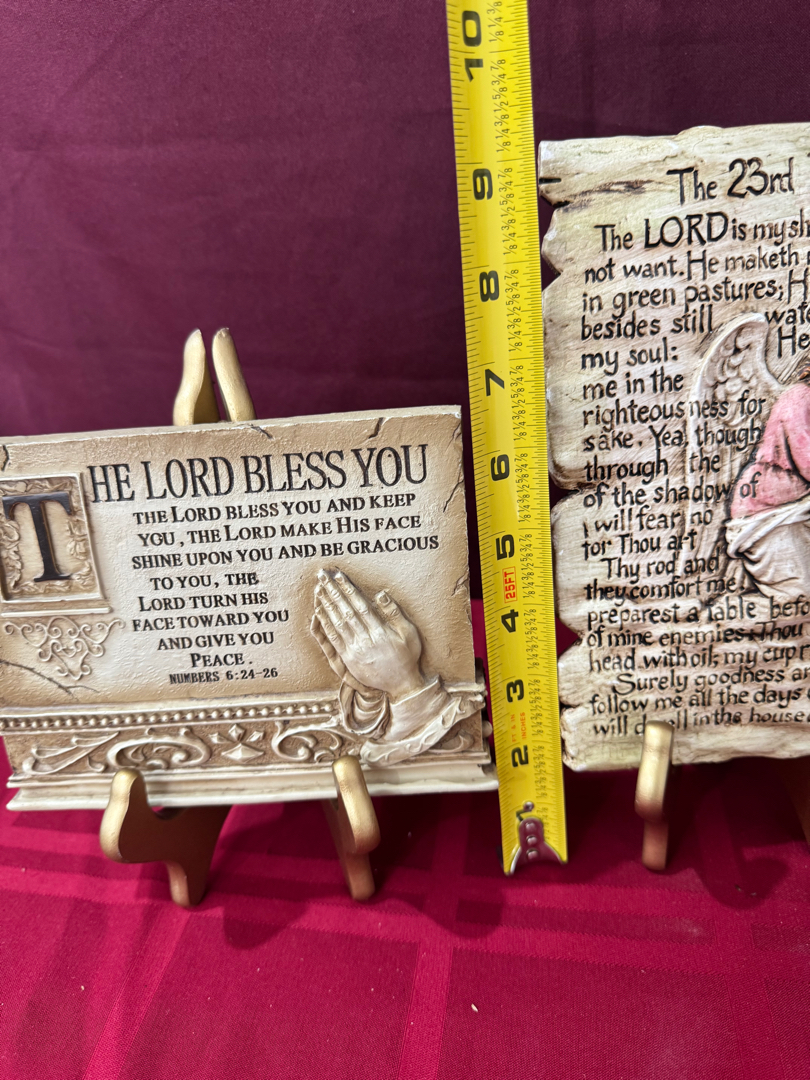 THE LORD BLESS YOU
THE LORD BLESS YOU AND KEEP
YOU, THE LORD MAKE HIS FACE
SHINE UPON YOU AND BE GRACIOUS
TO YOU, THE
LORD TURN HIS
FACE TOWARD YOU
AND GIVE YOU
PEACE.
NUMBERS 6:24-26
10
9
8
7
6
5
25FT
4
3
INCHES
2
1
The 23rd
The LORD is my sh
not want. He maketh
in green pastures; H
besides still wate
my soul: He
me in the
righteousness for
sake. Yea, though
through the
of the shadow of
I will fear no
for Thou art
Thy rod and
they comfort me.
preparest a table befo
of mine enemies: Thou
head with oil; my cup r
Surely goodness an
follow me all the days
will dwell in the house